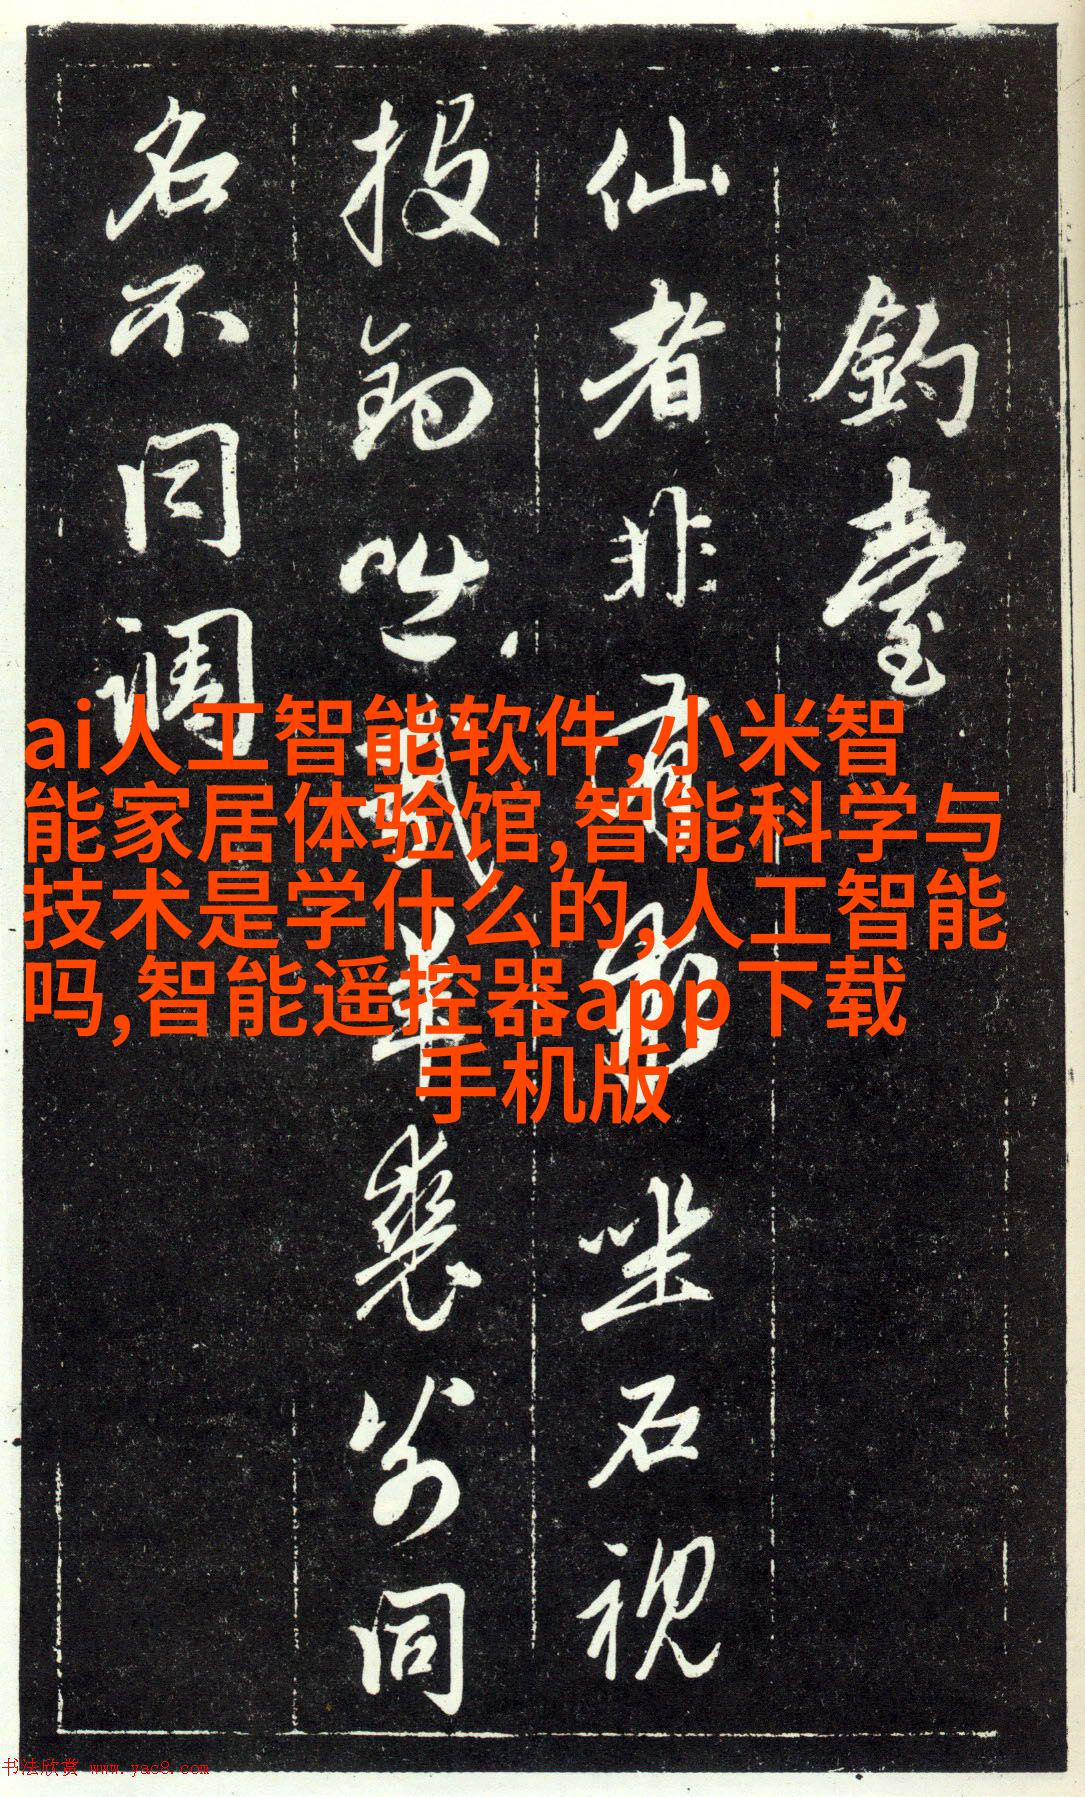 釣臺
仙者非有
坐石視
投釣咄哉羊裘
同
名不同调
ai人工智能软件,小米智
能家居体验馆,智能科学与
技术是学什么的,人工智能
吗,智能遥控器app下载
手机版
书法欣赏 www.yac8.com